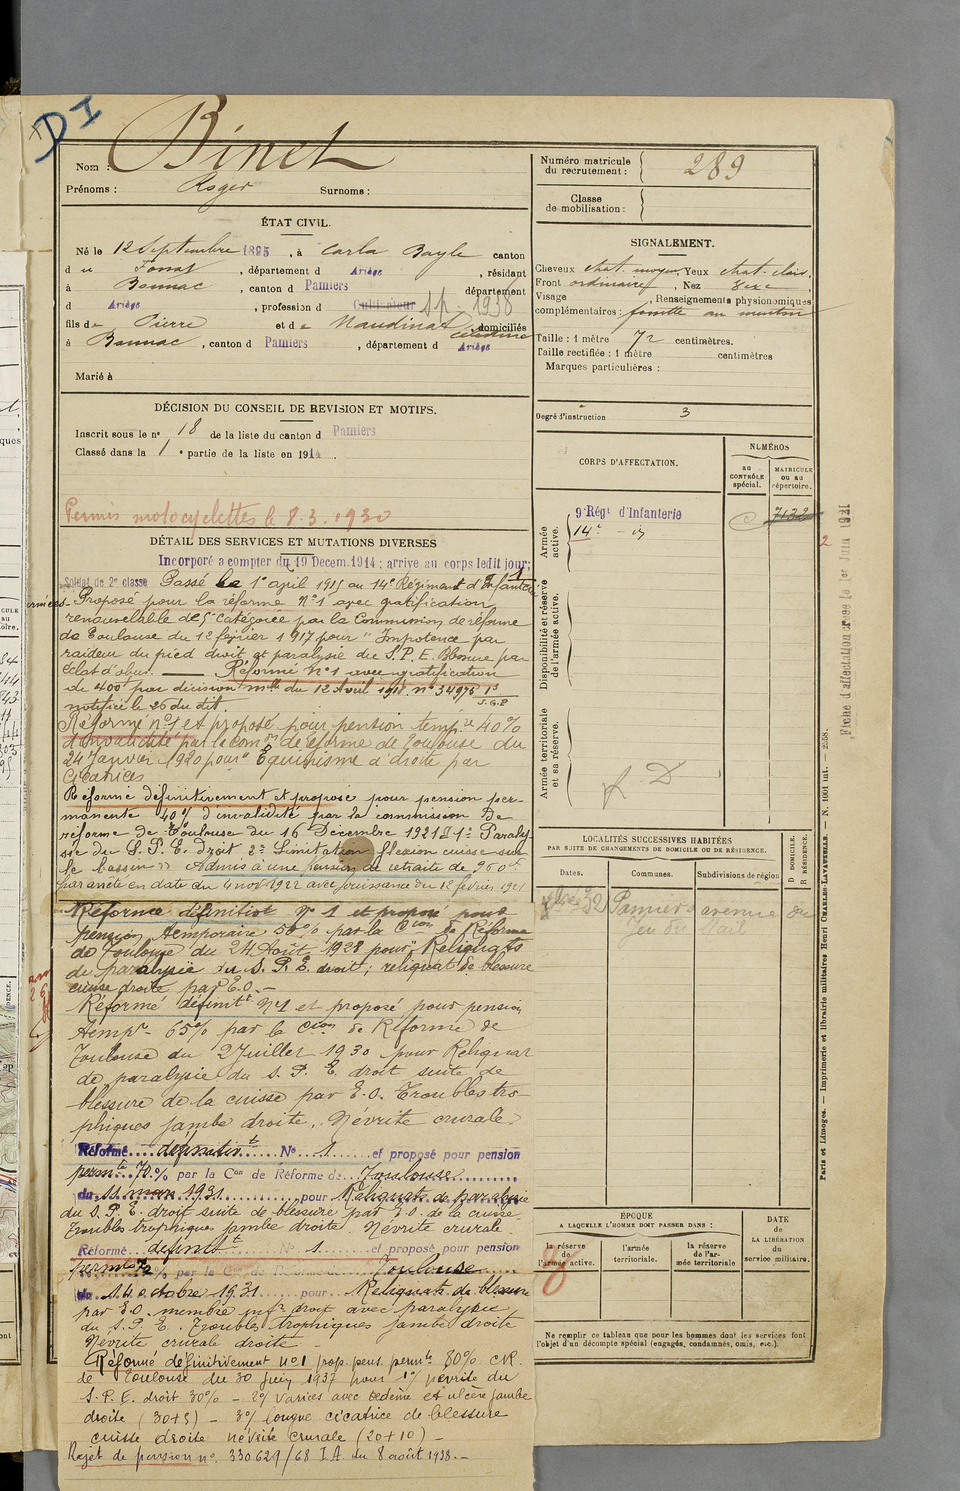 DI
Nom : Binet
Prénoms : Roger Surnoms :
ÉTAT CIVIL.
Né le 12 Septembre 1895, à Carla Bayle canton
du Fossat, département d Ariège, résidant
à Bonnac, canton d Pamiers département
d Ariège, profession d Cultivateur 1938
fils de Pierre et de Naudinat Célestine domiciliés
à Bonnac, canton d Pamiers, département d Ariège
Marié à
DÉCISION DU CONSEIL DE REVISION ET MOTIFS.
Inscrit sous le n° 18 de la liste du canton d Pamiers
Classé dans la 1° partie de la liste en 1914.
Permis motocyclettes le 8.3.1930
DÉTAIL DES SERVICES ET MUTATIONS DIVERSES
Incorporé a compter du 19 Decem. 1914 ; arrivé au corps ledit jour;
Soldat de 2e classe Passé le 1er april 1915 au 14e Régiment d'Infanterie
Proposé pour la réforme N°1 avec gratification
renouvelable de 5e catégorie par la Commission de réforme
de Toulouse du 12 février 1917 pour "Impotence par
raideur du pied droit et paralysie du S.P.E. Blessure par
éclat d'obus. — Réformé n°1 avec gratification
de 400f par décision mlle du 12 Avril 1918 n° 34976 1s
J.G.P
notifiée le 26 du dit.
Réformé n°1 et proposé pour pension tempre 40%
d'invalidité par la comon de réforme de Toulouse du
24 Janvier 1920 pour "Equinisme à droite par
Cicatrices
Réformé définitivement et proposé pour pension per-
manente 40% d'invalidité par la commission de
réforme de Toulouse du 16 Décembre 1921 1° Paraly-
sie du S.P.E. droit 2° Limitation flexion cuisse sur
le bassin » Admis à une pension de retraite de 960f
par arrêté en date du 4 nov 1922 avec jouissance du 12 février 1921
Réforme définitive N° 1 et proposé pour
pension temporaire 50% par la Cion de Réforme
de Toulouse du 24 Août 1928 pour "Reliquats
de paralysie du S.P.E. droit, reliquat de blessure
cuisse droite par E.O. —
Réformé définitt N°1 et proposé pour pension
tempre 65% par la Cion de Réforme de
Toulouse du 2 Juillet 1930 pour Reliquat
de paralysie du S.P.E. droit suite de
blessure de la cuisse par E.O. Troubles tro-
phiques jambe droite. Névrite crurale.
Réformé définitivt N° 1 et proposé pour pension
permte 70% par la Con de Réforme de Toulouse
du 11 mars 1931 pour Reliquats de paralysie
du S.P.E. droit suite de blessure par E.O. de la cuisse
Troubles trophiques jambe droite Névrite crurale
Réformé définitt N° 1 et proposé pour pension
permte % par la Con de Réforme de Toulouse
du 14 octobre 1931 pour Reliquats de blessure
par E.O. membre infr droit avec paralysie
du S.P.E. Troubles trophiques jambe droite
Névrite crurale droite
Réformé définitivement n°1 prop. pens. permte 80% C.R.
de Toulouse du 30 juin 1937 pour 1°/ névrite du
S.P.E. droit 30% — 2°/ varices avec oedème et ulcère jambe
droite (30+5) — 3°/ longue cicatrice de blessure
cuisse droite névrite crurale (20+10) —
Rejet de pension n° 330629/68 I.A. du 8 août 1938. —
Numéro matricule du recrutement : 289
Classe de mobilisation :
SIGNALEMENT.
Cheveux chat. moyen, Yeux chat. clair,
Front ordinaire, Nez
Visage , Renseignements physionomiques
complémentaires : fossette au menton
Taille : 1 mètre 72 centimètres.
Taille rectifiée : 1 mètre centimètres
Marques particulières :
Degré d'instruction 3
CORPS D'AFFECTATION.
NUMÉROS
AU CONTRÔLE spécial.
MATRICULE OU AU répertoire.
Armée active.
9e Régt d'Infanterie 7132
14e — d°
Disponibilité et réserve de l'armée active.
Armée territoriale et sa réserve.
R.D
Fiche d'affectation créée le 1er Juin 1921
LOCALITÉS SUCCESSIVES HABITÉES
PAR SUITE DE CHANGEMENTS DE DOMICILE OU DE RÉSIDENCE.
Dates.
Communes.
Subdivisions de région
D DOMICILE.
R RÉSIDENCE.
32 Pamiers avenue du
Jeu du Mail
ÉPOQUE
A LAQUELLE L'HOMME DOIT PASSER DANS :
la réserve de l'armée active.
l'armée territoriale.
la réserve de l'armée territoriale
DATE de LA LIBÉRATION du service militaire.
Ne remplir ce tableau que pour les hommes dont les services font
l'objet d'un décompte spécial (engagés, condamnés, omis, etc.).
Paris et Limoges. — Imprimerie et librairie militaires Henri CHARLES-LAVAUZELLE. — N. 1001 int. — 2558.